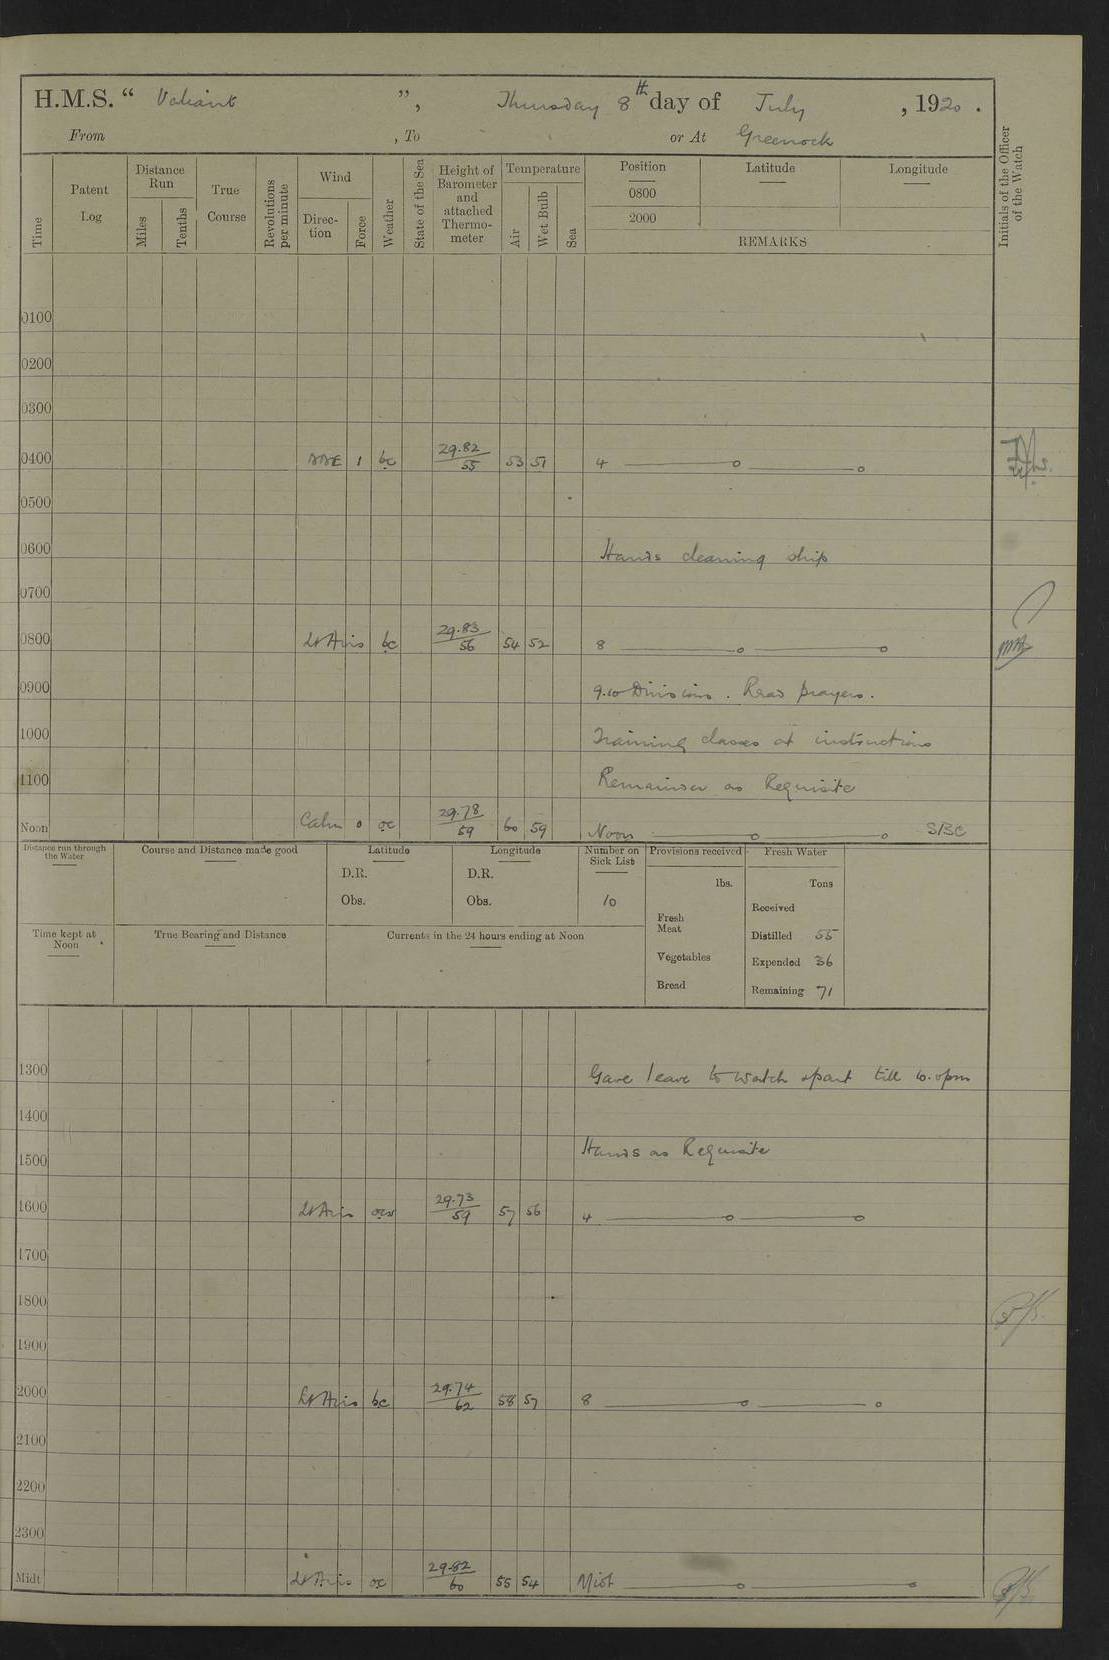 H.M.S. " Valiant ", Thursday 8th day of July, 1920.
From , To or At Greenock
Time
Patent Log
Distance Run
Miles
Tenths
True Course
Revolutions per minute
Wind
Direction
Force
Weather
State of the Sea
Height of Barometer and attached Thermometer
Temperature
Air
Wet Bulb
Sea
Position
Latitude
Longitude
0800
2000
REMARKS
Initials of the Officer of the Watch
0100
0200
0300
0400 1 bc 29.82 55 53 51 4
0500
0600 Hands cleaning ship
0700
0800 Lt Airs bc 29.83 56 54 52 8
0900 9.10 Divisions. Read prayers.
1000 Training classes at instructions
1100 Remainder as Requisite
Noon Calm 0 oc 29.78 59 60 59 Noon SBC
Distance run through the Water
Course and Distance made good
Latitude
D.R.
Obs.
Longitude
D.R.
Obs.
Number on Sick List
10
Provisions received
lbs.
Fresh Meat
Vegetables
Bread
Fresh Water
Tons
Received
Distilled 55
Expended 36
Remaining 71
Time kept at Noon
True Bearing and Distance
Currents in the 24 hours ending at Noon
1300 Gave leave to watch & part till 10.0pm
1400
1500 Hands as Requisite
1600 Lt Airs 29.73 59 57 56 4
1700
1800
1900
2000 Lt Airs bc 29.74 62 58 57 8
2100
2200
2300
Midt Lt Airs oc 29.82 60 55 54 Midt